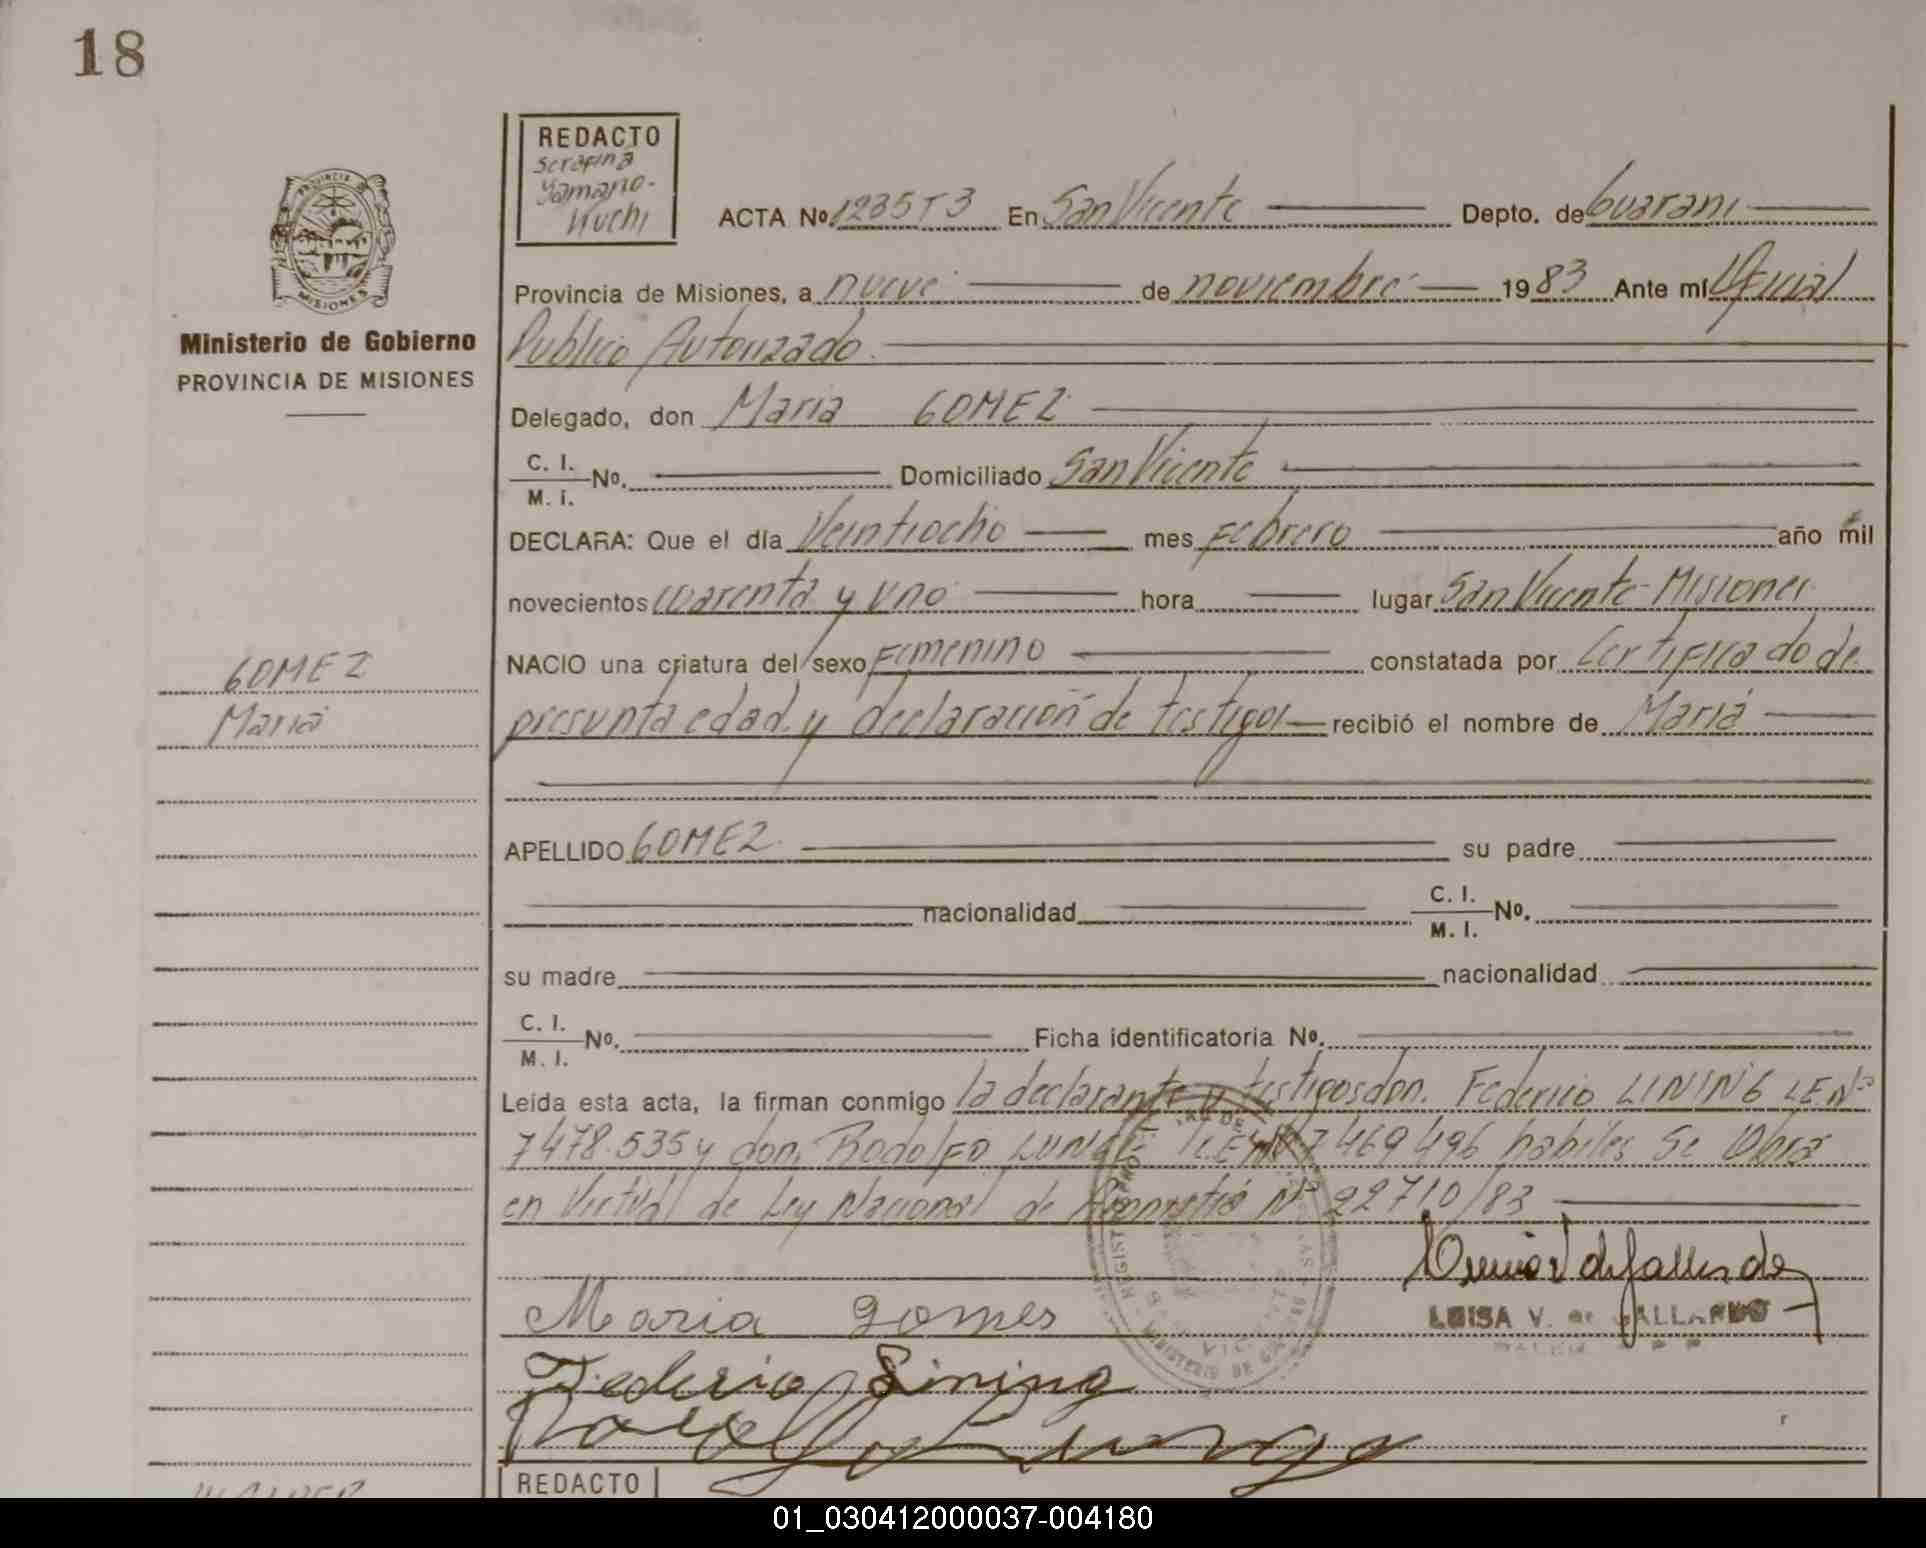 18
REDACTO
Serafina
Yamano-
Kuchi
ACTA Nº 1235 T3 En San Vicente Depto. de Guarani
PROVINCIA DE
MISIONES
Provincia de Misiones, a nueve de noviembre 1983 Ante mí Oficial
Ministerio de Gobierno
PROVINCIA DE MISIONES
Publico Autorizado.
Delegado, don Maria GOMEZ
C. I.
M. I. Nº. Domiciliado San Vicente
DECLARA: Que el día Veintiocho mes Febrero año mil
novecientos cuarenta y uno hora lugar San Vicente-Misiones
NACIO una criatura del sexo Femenino constatada por Certificado de
GOMEZ
Maria
presunta edad y declaración de testigos recibió el nombre de Maria
APELLIDO GOMEZ su padre
nacionalidad C. I.
M. I. Nº.
su madre nacionalidad
C. I.
M. I. Nº. Ficha identificatoria Nº.
Leida esta acta, la firman conmigo la declarante y testigos don. Federico LINING L.E.Nº
7478.535 y don. Rodolfo L.E.Nº 7469496 habiles Se
en Virtud de Ley Nacional de Amnistia Nº 22710/83
Maria gomes
LUISA V. de GALLARDO
Federico Lining
REDACTO
01_030412000037-004180